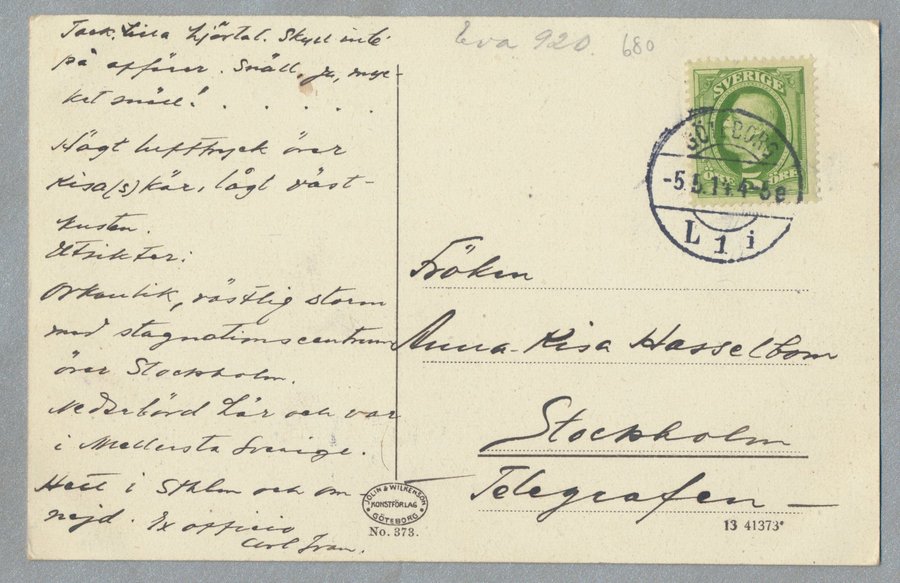 Tack. Lilla hjärtat. Skyll inte
på affärer. Snäll, ja, myc-
ket snäll! . . . . . .
Högt lufttryck över
Kisa(s) kär, lågt väst-
kusten.
Utsikter:
Orkanlik, västlig storm
med stagnationscentrum
över Stockholm.
Nederbörd här och var
i Mellersta Sverige.
Hett i Sthlm och om-
nejd. Ex officio
Carl Ivan.
Eva 920. 680
SVERIGE
ÖRE
GÖTEBORG
-5.5.14.4-5e
L 1 i
Fröken
Anna-Kisa Hasselbom
Stockholm
Telegrafen
JOLIN & WILKENSON
KONSTFÖRLAG
GÖTEBORG
No. 373.
13 41373*